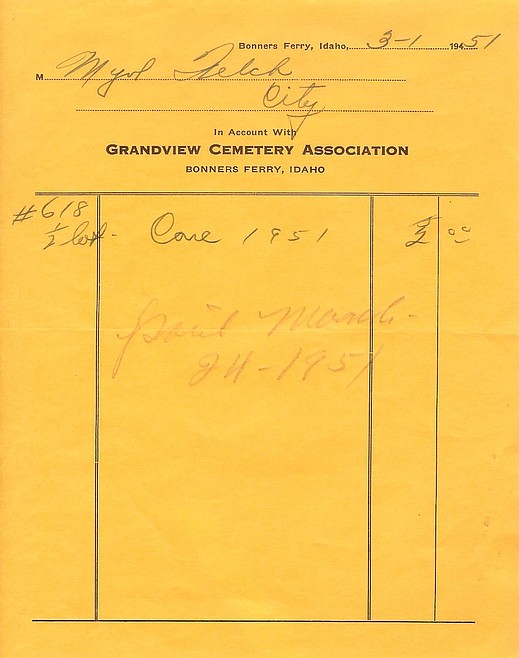 Bonners Ferry, Idaho, 3-1 194 51
M Myrl Felch
City
In Account With
GRANDVIEW CEMETERY ASSOCIATION
BONNERS FERRY, IDAHO
#618
½ lot - Care 1951 00
Paid March -
24-1951